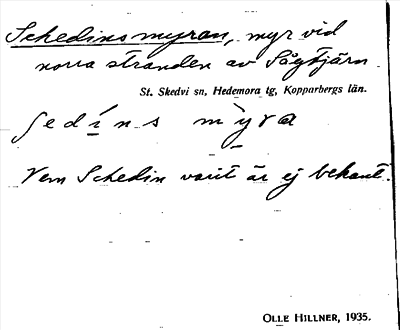 Schedinsmyran, myr vid
norra stranden av Sågtjärn.
St. Skedvi sn, Hedemora tg, Kopparbergs län.
ʃedíns mỳra
Vem Schedin varit är ej bekant.
OLLE HILLNER, 1935.